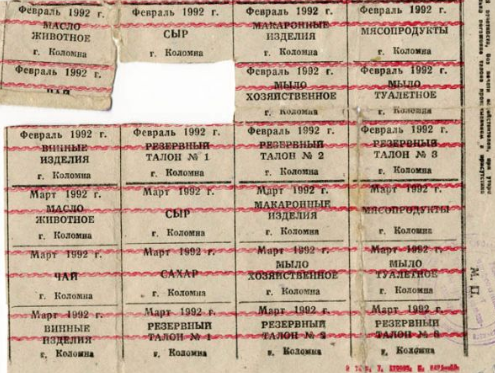 Февраль 1992 г.
МАСЛО
ЖИВОТНОЕ
г. Коломна
Февраль 1992 г.
СЫР
г. Коломна
Февраль 1992 г.
МАКАРОННЫЕ
ИЗДЕЛИЯ
г. Коломна
Февраль 1992 г.
МЯСОПРОДУКТЫ
г. Коломна
Февраль 1992 г.
ЧАЙ
Февраль 1992 г.
МЫЛО
ХОЗЯЙСТВЕННОЕ
г. Коломна
Февраль 1992 г.
МЫЛО
ТУАЛЕТНОЕ
г. Коломна
Февраль 1992 г.
ВИННЫЕ
ИЗДЕЛИЯ
г. Коломна
Февраль 1992 г.
РЕЗЕРВНЫЙ
ТАЛОН № 1
г. Коломна
Февраль 1992 г.
РЕЗЕРВНЫЙ
ТАЛОН № 2
г. Коломна
Февраль 1992 г.
РЕЗЕРВНЫЙ
ТАЛОН № 3
г. Коломна
Март 1992 г.
МАСЛО
ЖИВОТНОЕ
г. Коломна
Март 1992 г.
СЫР
г. Коломна
Март 1992 г.
МАКАРОННЫЕ
ИЗДЕЛИЯ
г. Коломна
Март 1992 г.
МЯСОПРОДУКТЫ
г. Коломна
Март 1992 г.
ЧАЙ
г. Коломна
Март 1992 г.
САХАР
г. Коломна
Март 1992 г.
МЫЛО
ХОЗЯЙСТВЕННОЕ
г. Коломна
Март 1992 г.
МЫЛО
ТУАЛЕТНОЕ
г. Коломна
Март 1992 г.
ВИННЫЕ
ИЗДЕЛИЯ
г. Коломна
Март 1992 г.
РЕЗЕРВНЫЙ
ТАЛОН №
г. Коломна
Март 1992 г.
РЕЗЕРВНЫЙ
ТАЛОН №
г. Коломна
Март 1992 г.
РЕЗЕРВНЫЙ
ТАЛОН №
г. Коломна
М. П.